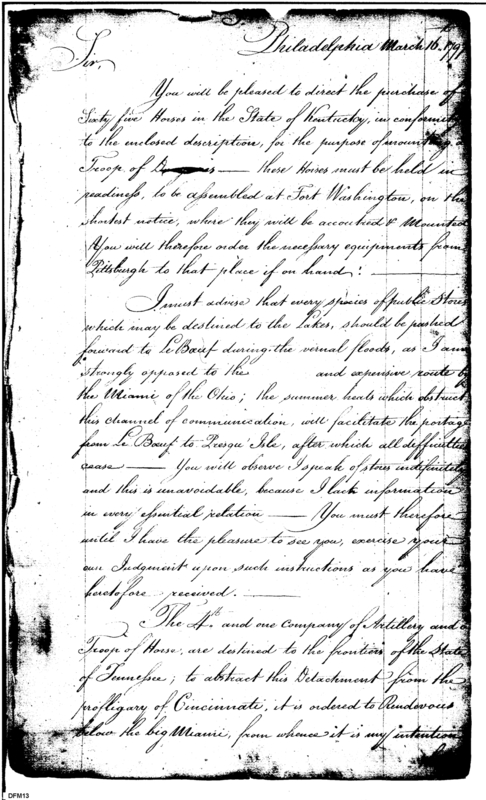 Philadelphia March 16. 179
Sir,
You will be pleased to direct the purchase of
Sixty five Horses in the State of Kentucky, in conformity
to the enclosed description, for the purpose of mounting a
Troop of — these Horses must be held in
readiness, to be assembled at Fort Washington, on the
shortest notice, where they will be accoutred & Mounted
You will therefore order the necessary equipments from
Pittsburgh to that place if on hand: —
I must advise that every species of public Stores
which may be destined to the Lakes, should be pushed
forward to Le Bœuf during the vernal floods, as I am
strongly opposed to the and expensive route by
the Miami of the Ohio; the summer heats which obstruct
this channel of communication, will facilitate the portage
from Le Bœuf to Presqu' Isle, after which all difficulties
cease — You will observe I speak of stores indefinitely
and this is unavoidable, because I lack information
in every essential relation — You must therefore
until I have the pleasure to see you, exercise your
own Judgment upon such instructions as you have
heretofore received. —
The 4th and one company of Artillery and a
Troop of Horse, are destined to the frontiers of the State
of Tennessee; to abstract this Detachment from the
profligacy of Cincinnati, it is ordered to Rendevous
below the big Miami, from whence it is my intention
DFM13